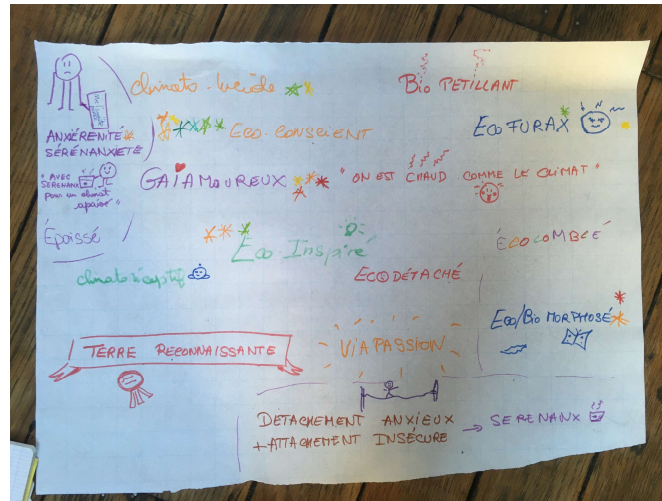 Climato-lucide
Bio PETILLANT
ANXIÉRENITÉ
SÉRÉNANXIETÉ
ECO-CONSCIENT
ECOFURAX
"AVEC
SERENANX
pour un climat
apaisé"
GAÏAMOUREUX
"ON EST CHAUD COMME LE CLIMAT"
Époissé
Eco-Inspiré
ÉCOCOMBLÉ
climato
ECODÉTACHÉ
Eco/Bio MORPHOSÉ
TERRE RECONNAISSANTE
VIAPASSION
DETACHEMENT ANXIEUX
+ATTACHEMENT INSÉCURE
→ SERENANX